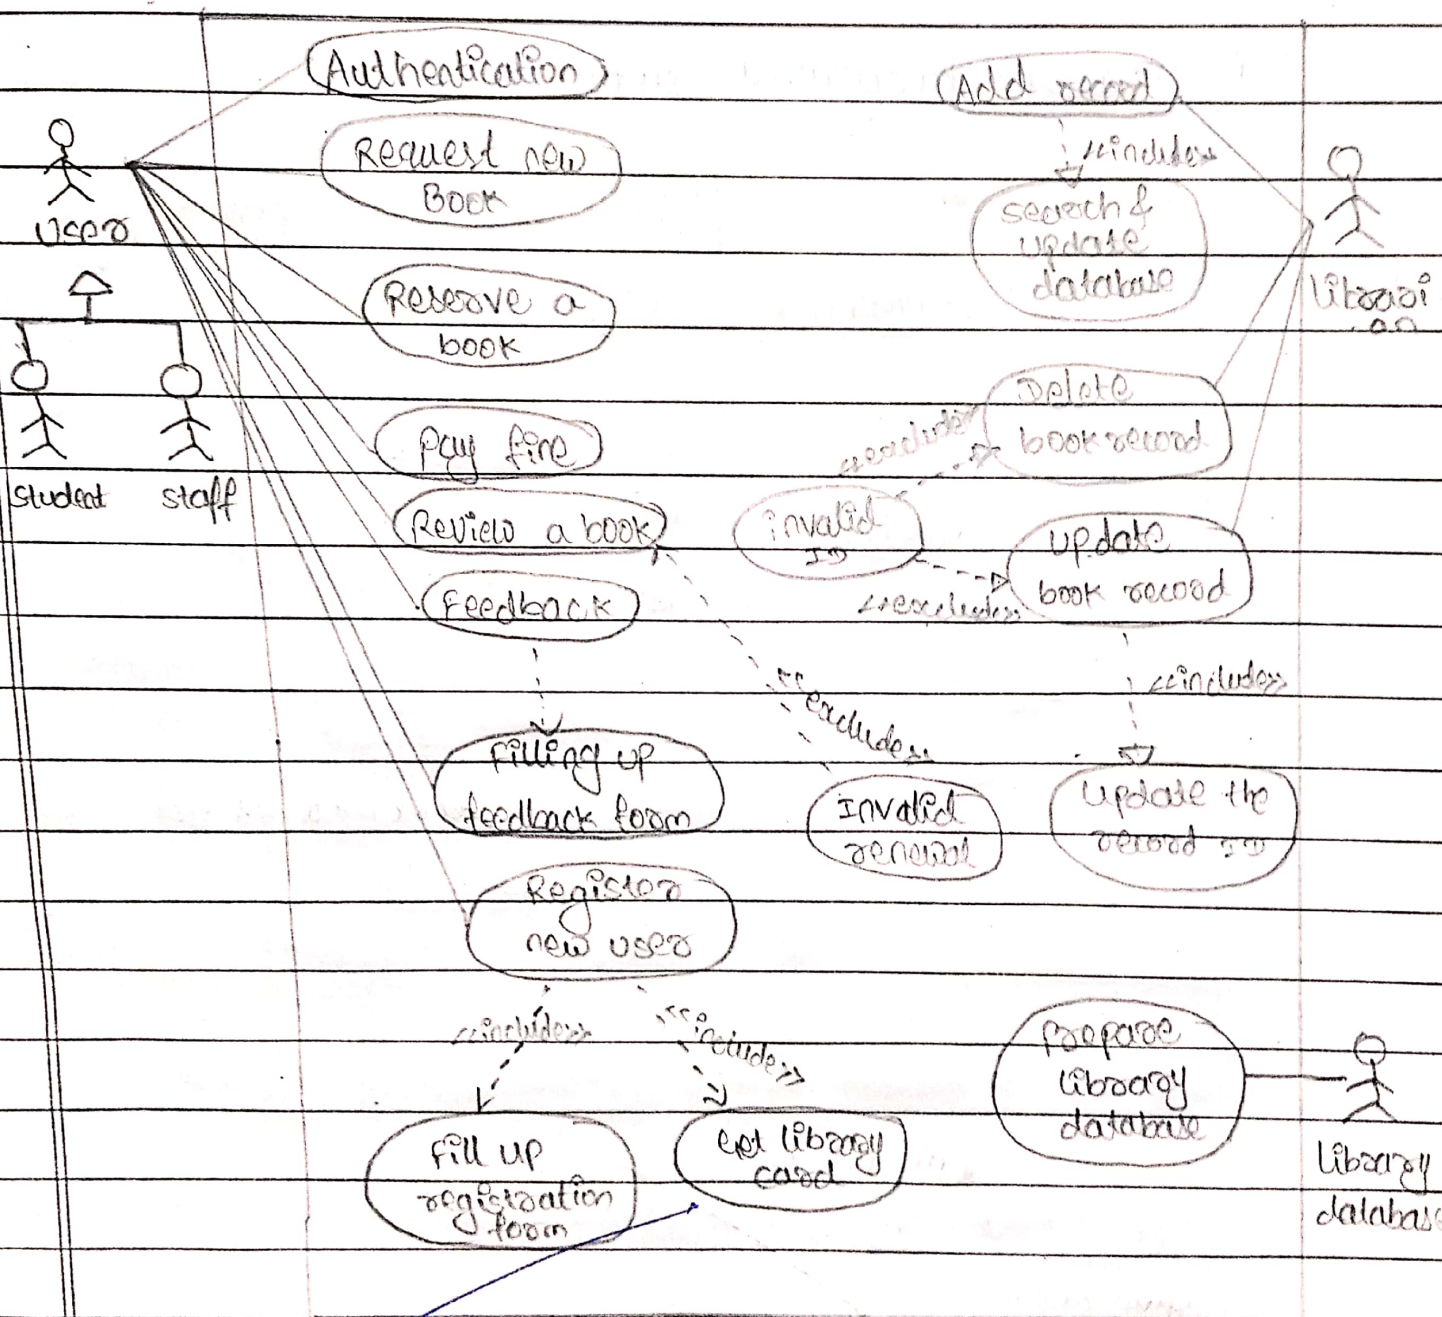 Authentication
Request new
Book
User
Reserve a
book
Pay fine
Student
Staff
Review a book
Feedback
Filling up
feedback form
Register
new user
<<include>>
<<include>>
Fill up
registration
form
Get library
card
Add record
<<include>>
search &
update
database
Librari
an
Delete
book record
<<exclude>>
invalid
ID
<<exclude>>
Update
book record
<<include>>
<<exclude>>
Invalid
renewal
Update the
record ID
Prepare
library
database
Library
database